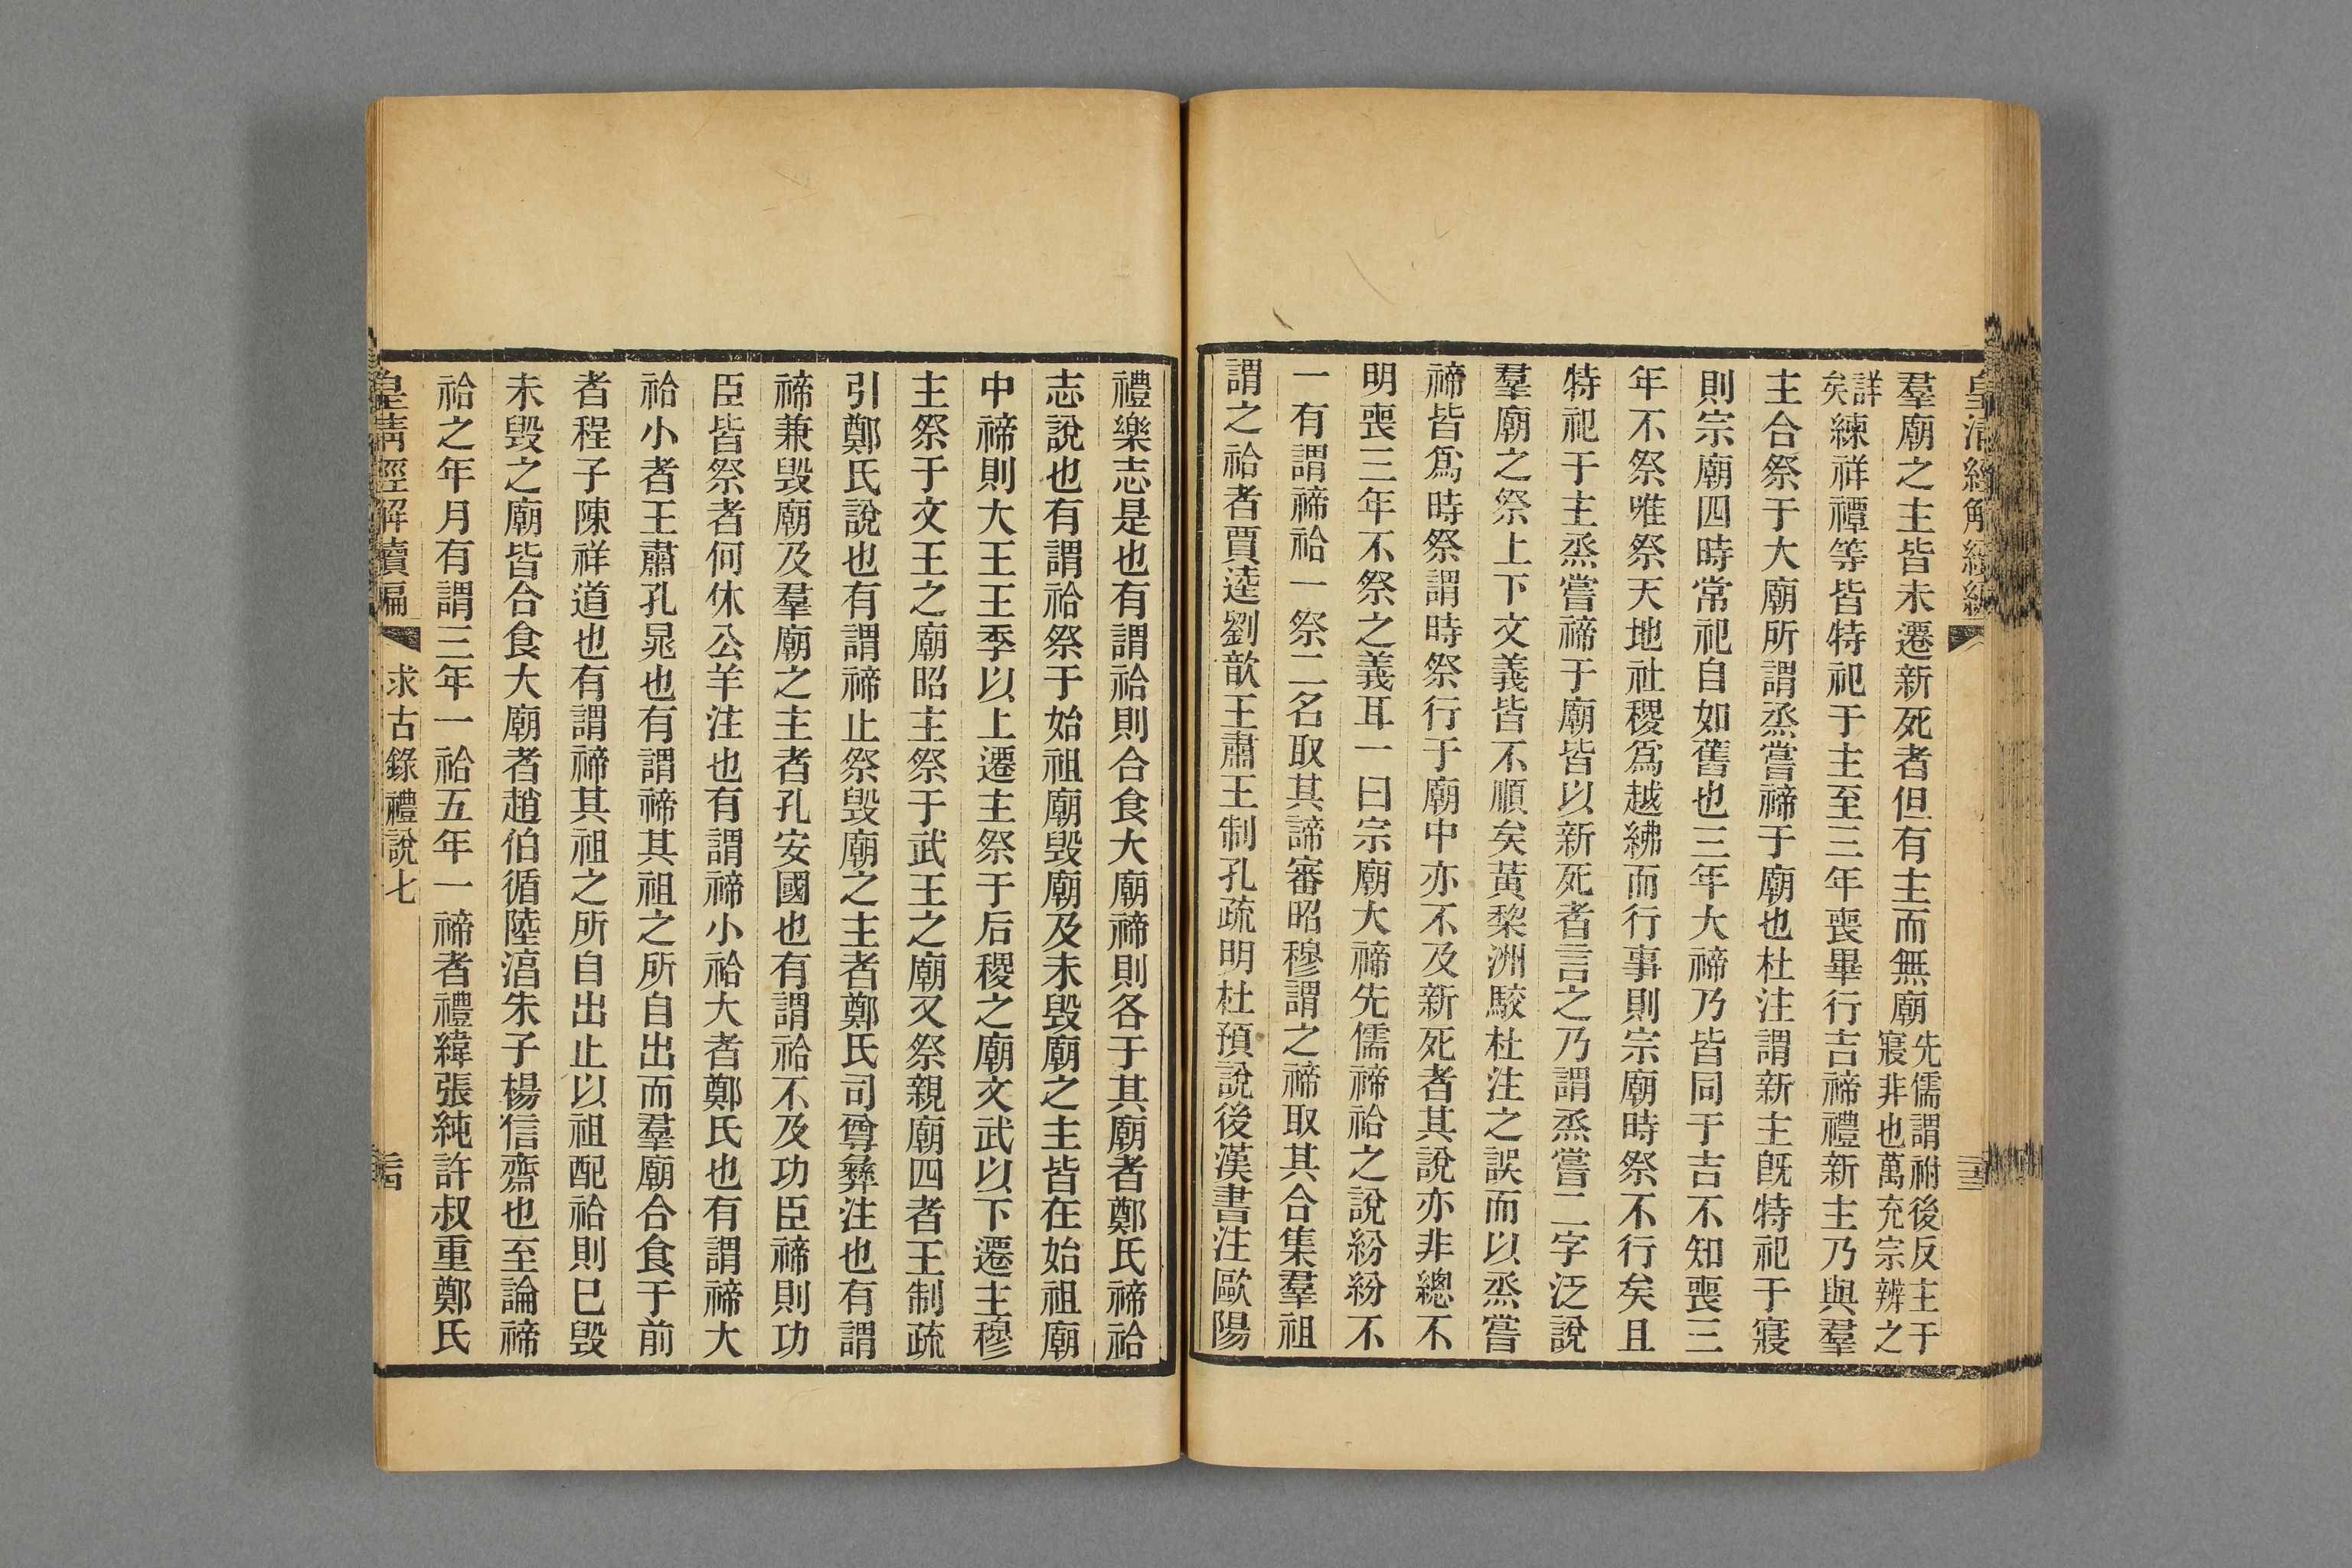 皇清經解續編
羣廟之主皆未遷新死者但有主而無廟先儒謂祔後反主于寢非也萬充宗辨之
詳矣練祥禫等皆特祀于主至三年喪畢行吉禘禮新主乃與羣
主合祭于大廟所謂烝嘗禘于廟也杜注謂新主旣特祀于寢
則宗廟四時常祀自如舊也三年大禘乃皆同于吉不知喪三
年不祭唯祭天地社稷爲越紼而行事則宗廟時祭不行矣且
特祀于主烝嘗禘于廟皆以新死者言之乃謂烝嘗二字泛說
羣廟之祭上下文義皆不順矣黃棃洲駮杜注之誤而以烝嘗
禘皆爲時祭謂時祭行于廟中亦不及新死者其說亦非總不
明喪三年不祭之義耳一曰宗廟大禘先儒禘祫之說紛紛不
一有謂禘祫一祭二名取其諦審昭穆謂之禘取其合集羣祖
謂之祫者賈逵劉歆王肅王制孔疏明杜預說後漢書注歐陽
禮樂志是也有謂祫則合食大廟禘則各于其廟者鄭氏禘祫
志說也有謂祫祭于始祖廟毁廟及未毁廟之主皆在始祖廟
中禘則大王王季以上遷主祭于后稷之廟文武以下遷主穆
主祭于文王之廟昭主祭于武王之廟又祭親廟四者王制疏
引鄭氏說也有謂禘止祭毁廟之主者鄭氏司尊彝注也有謂
禘兼毁廟及羣廟之主者孔安國也有謂祫不及功臣禘則功
臣皆祭者何休公羊注也有謂禘小祫大者鄭氏也有謂禘大
祫小者王肅孔晁也有謂禘其祖之所自出而羣廟合食于前
者程子陳祥道也有謂禘其祖之所自出止以祖配祫則巳毁
未毁之廟皆合食大廟者趙伯循陸淳朱子楊信齋也至論禘
祫之年月有謂三年一祫五年一禘者禮緯張純許叔重鄭氏
皇淸經解續編 求古錄禮說七 三十四